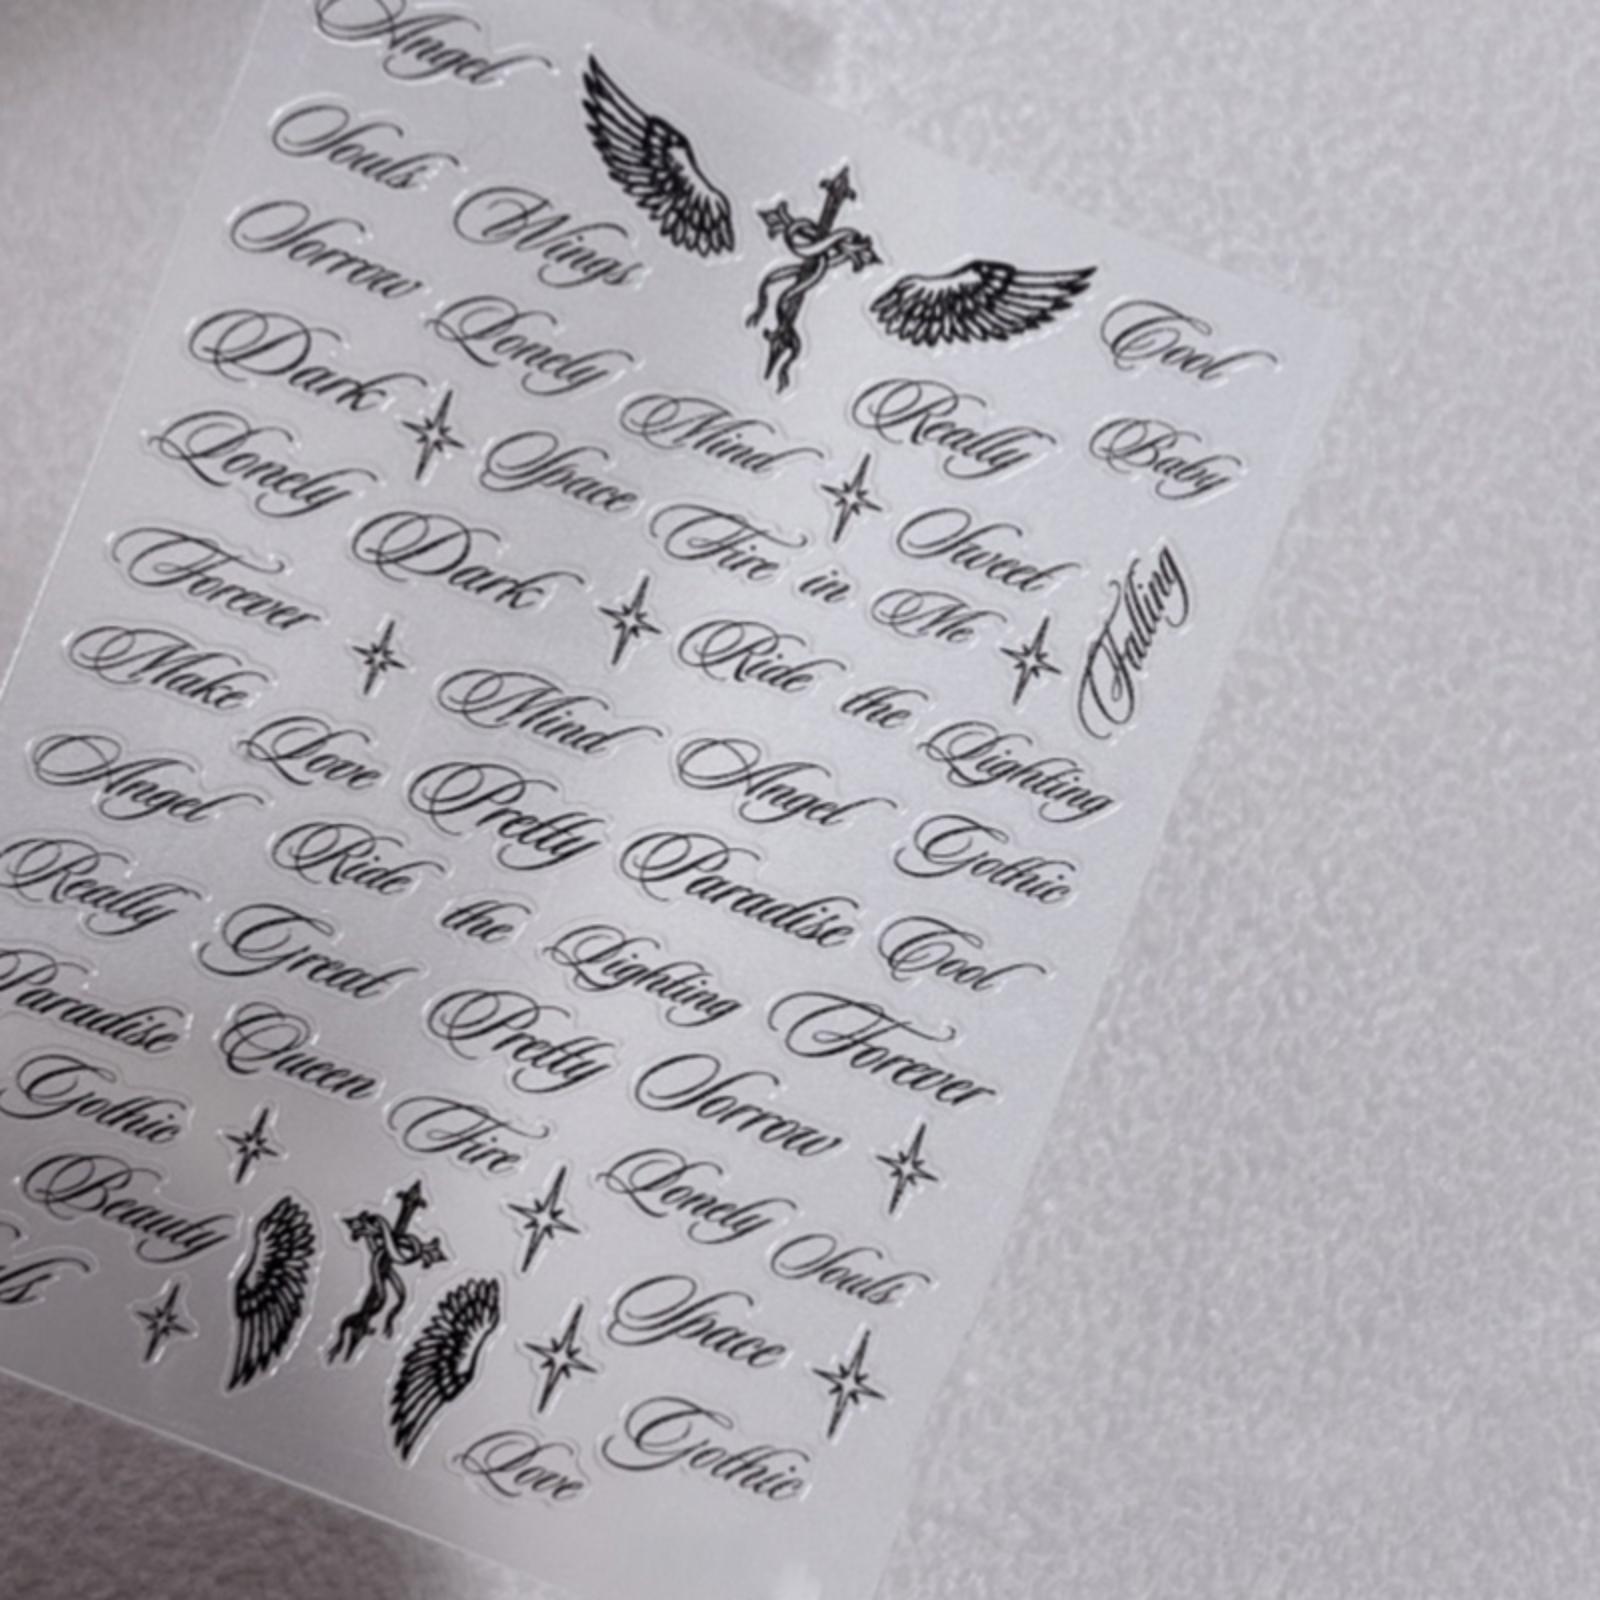 Angel
Souls Wings
Sorrow Lonely Cool
Dark Mind Really Baby
Lonely Space Sweet
Forever Dark Fire in Me Falling
Make Mind Ride the Lighting
Angel Love Pretty Angel Gothic
Really Ride the Lighting Paradise Cool
Paradise Great Pretty Forever
Gothic Queen Fire Sorrow
Beauty Lonely Souls
Space
Love Gothic